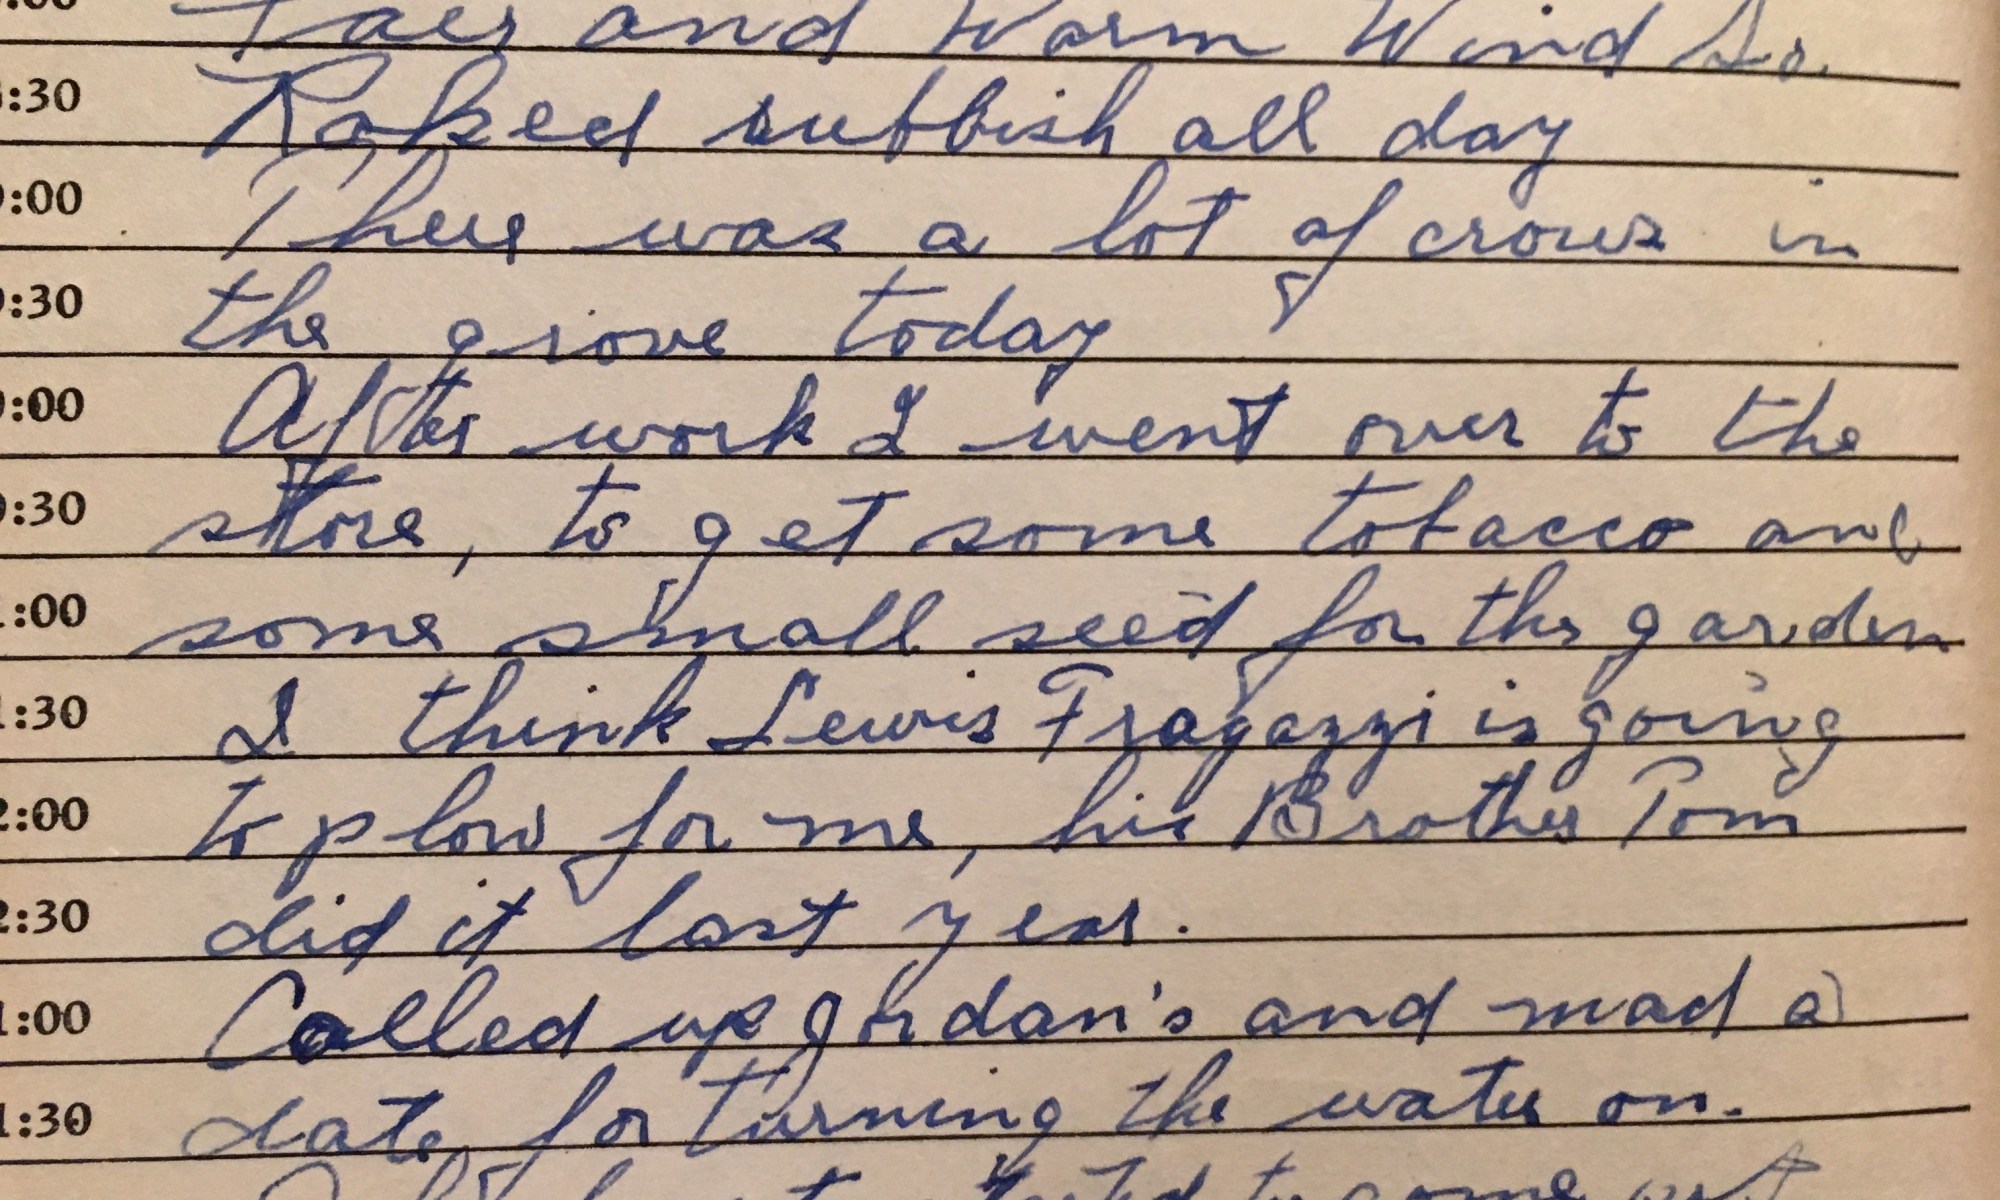 Fair and Warm Wind So.
:30 Raked rubbish all day
:00 There was a lot of crows in
:30 the grove today
:00 After work I went over to the
:30 store, to get some tobacco and
:00 some small seed for the garden
:30 I think Lewis Fragazzi is going
2:00 to plow for me, his Brother Tom
2:30 did it last year.
1:00 Called up Jordan's and mad a
1:30 date for turning the water on.
started to come out